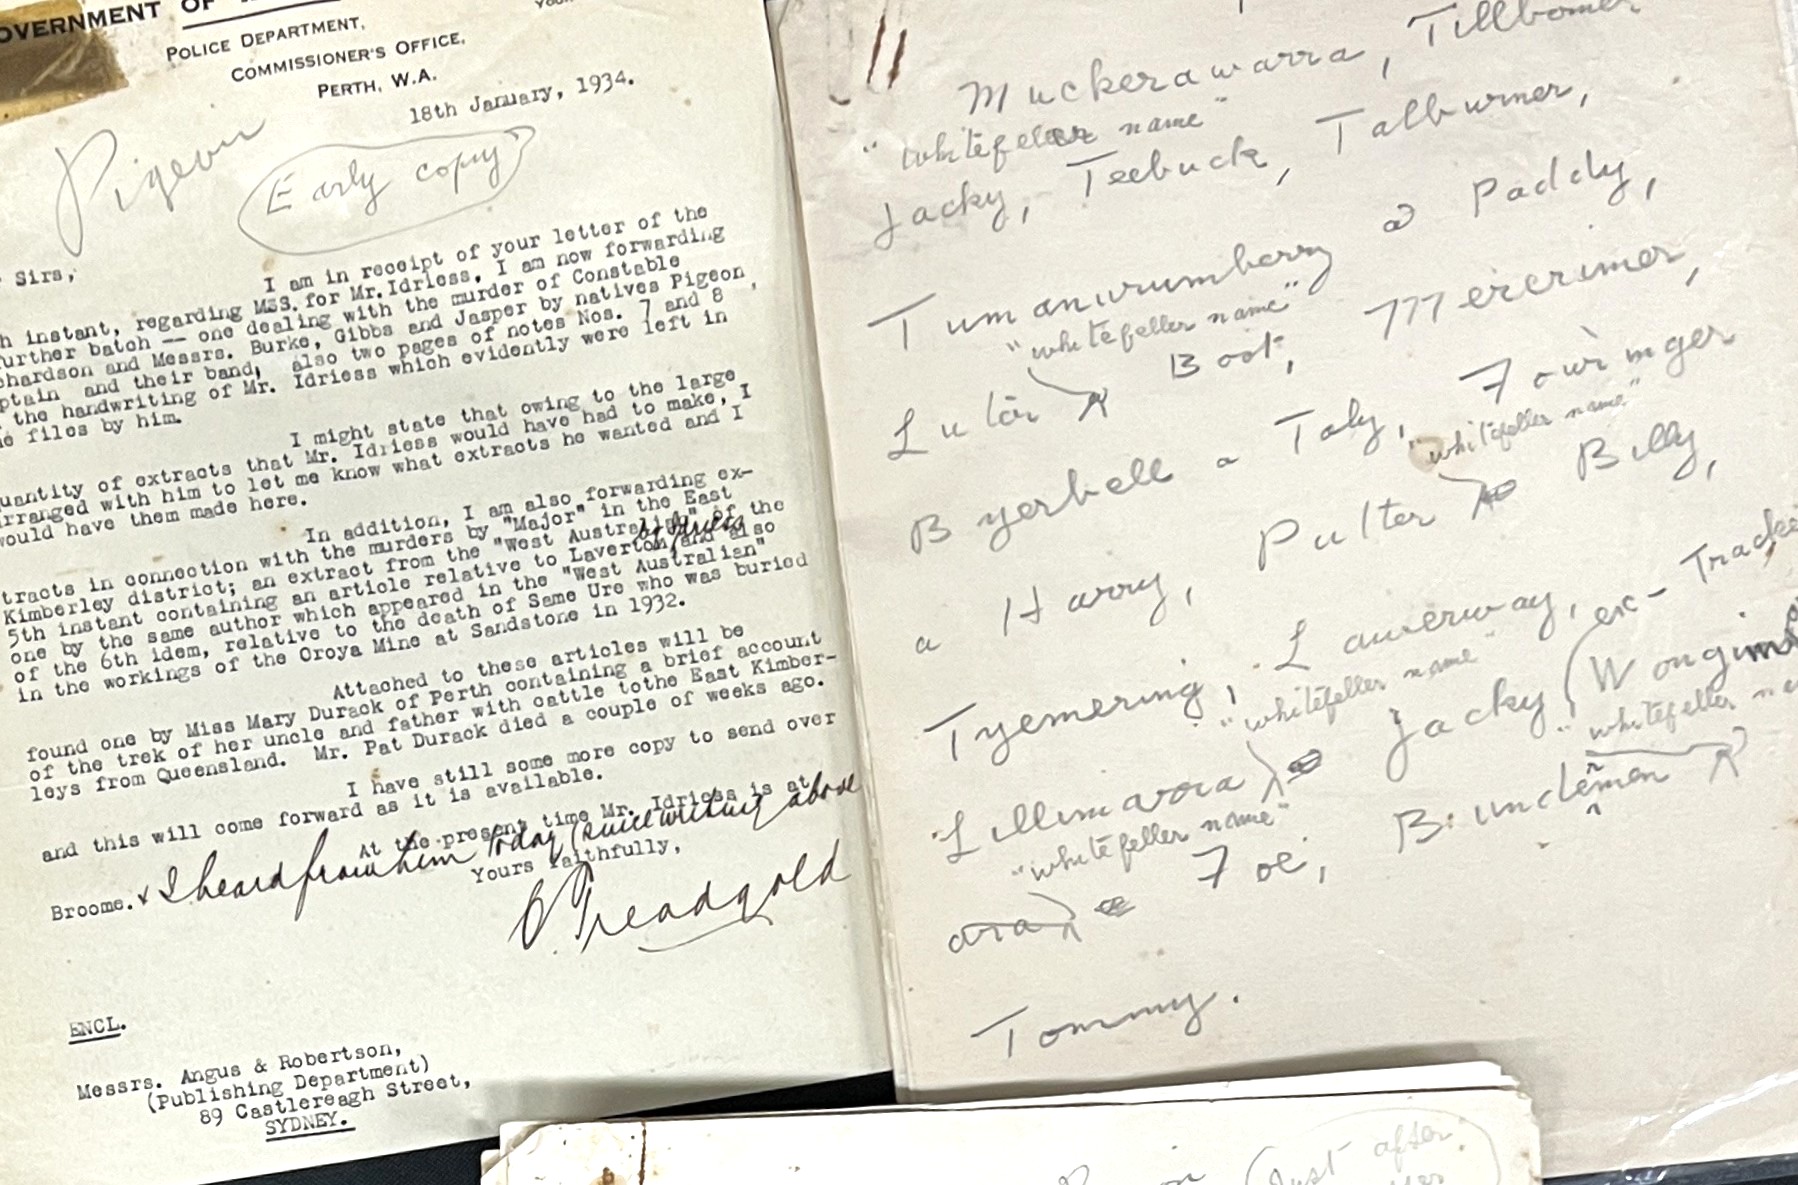 GOVERNMENT OF
POLICE DEPARTMENT,
COMMISSIONER'S OFFICE,
PERTH, W.A.
18th January, 1934.
Pigeon
Early copy
Sirs,
I am in receipt of your letter of the
h instant, regarding MSS. for Mr. Idriess, I am now forwarding
further batch -- one dealing with the murder of Constable
chardson and Messrs. Burke, Gibbs and Jasper by natives Pigeon
ptain and their band, also two pages of notes Nos. 7 and 8,
the handwriting of Mr. Idriess which evidently were left in
e files by him.
I might state that owing to the large
quantity of extracts that Mr. Idriess would have had to make, I
arranged with him to let me know what extracts he wanted and I
would have them made here.
In addition, I am also forwarding ex-
tracts in connection with the murders by "Major" in the East
Kimberley district; an extract from the "West Australian" of the
5th instant containing an article relative to Laverton and also
one by the same author which appeared in the "West Australian"
of the 6th idem, relative to the death of Same Ure who was buried
in the workings of the Oroya Mine at Sandstone in 1932.
Attached to these articles will be
found one by Miss Mary Durack of Perth containing a brief account
of the trek of her uncle and father with cattle tothe East Kimber-
leys from Queensland. Mr. Pat Durack died a couple of weeks ago.
I have still some more copy to send over
and this will come forward as it is available.
At the present time Mr. Idriess is at
Broome. I heard from him today (since writing above
Yours faithfully,
Treadgold
ENCL.
Messrs. Angus & Robertson,
(Publishing Department)
89 Castlereagh Street,
SYDNEY.
Muckerawarra, Tillbomer
"whitefeller name"
Jacky, Teebuck, Talburner,
Tumanurumberry a Paddy,
"whitefeller name"
Luter Boot, Mererimer,
Byerbell a Toby, Fouringer
"whitefeller name"
a Harry, Pulter Billy,
Tyemering, Lauerway, (ex-Tracker
"whitefeller name"
Lillimarora Jacky (Wongin
"whitefeller name" "whitefeller
ara Joe, Bunclemen
Tommy.
(Just after